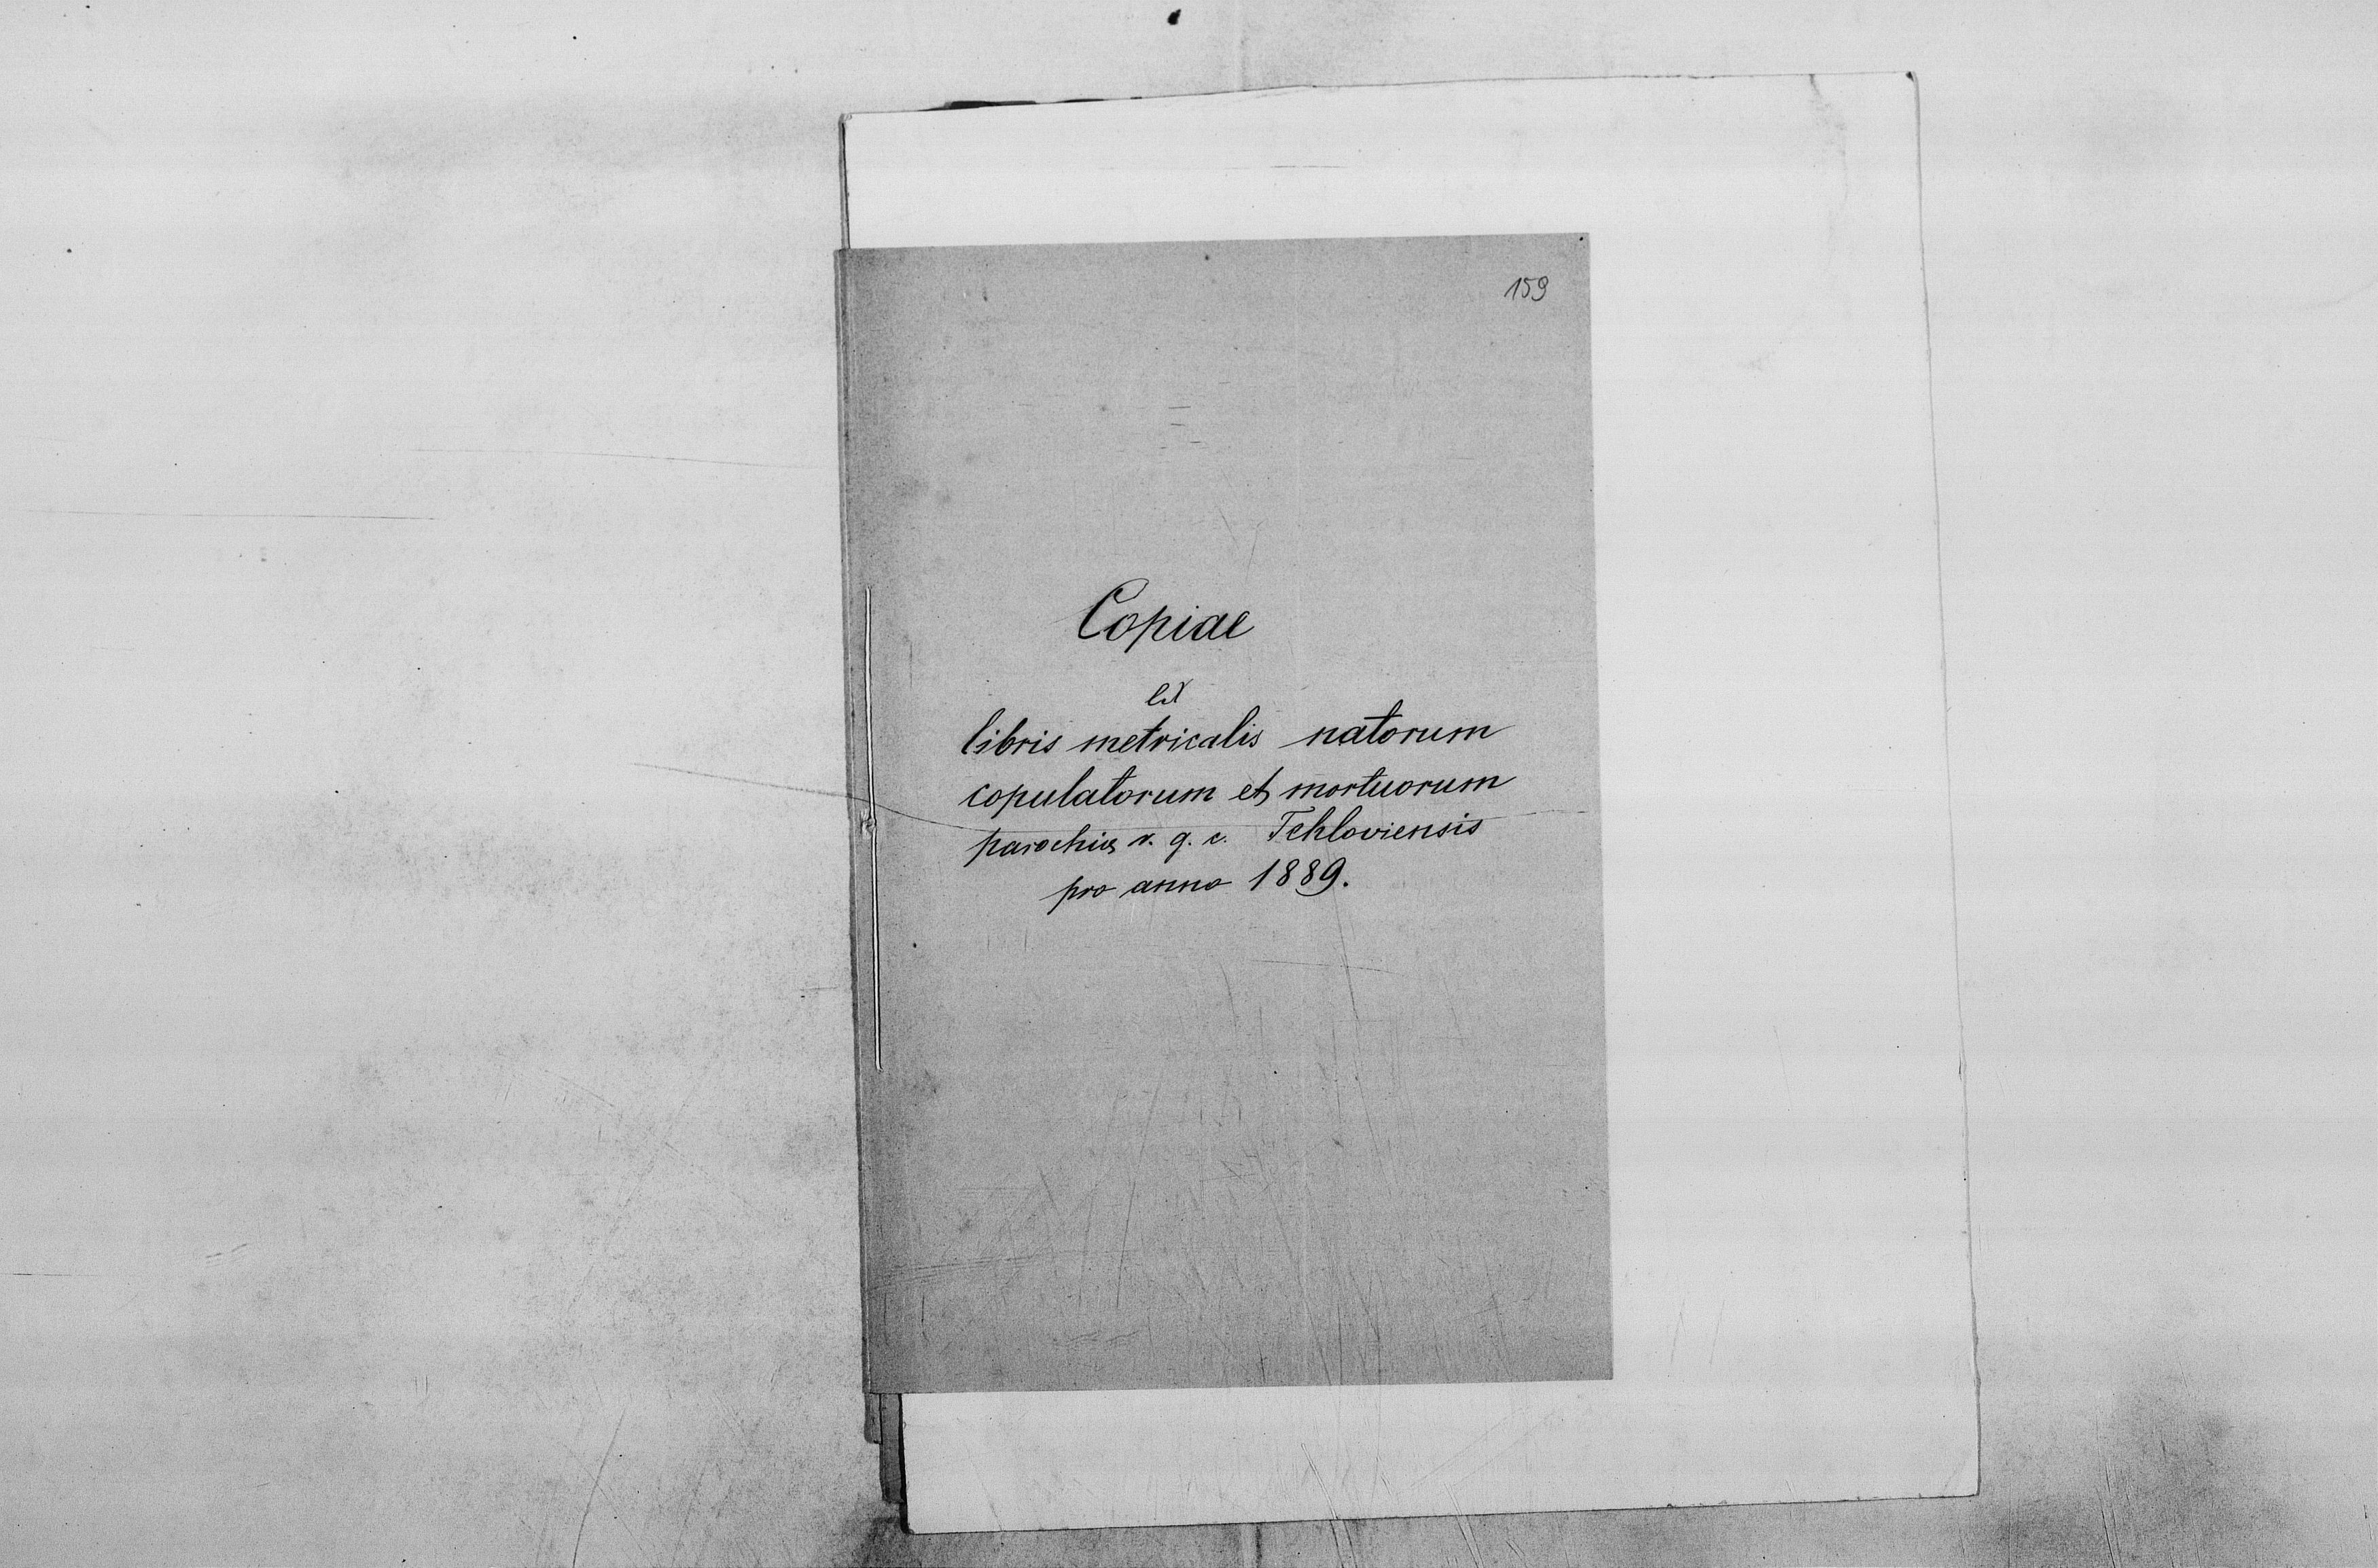 159
Copiae
ex
libris metricalis natorum
copulatorum et mortuorum
parochiæ r. g. c. Tehloviensis
pro anno 1889.